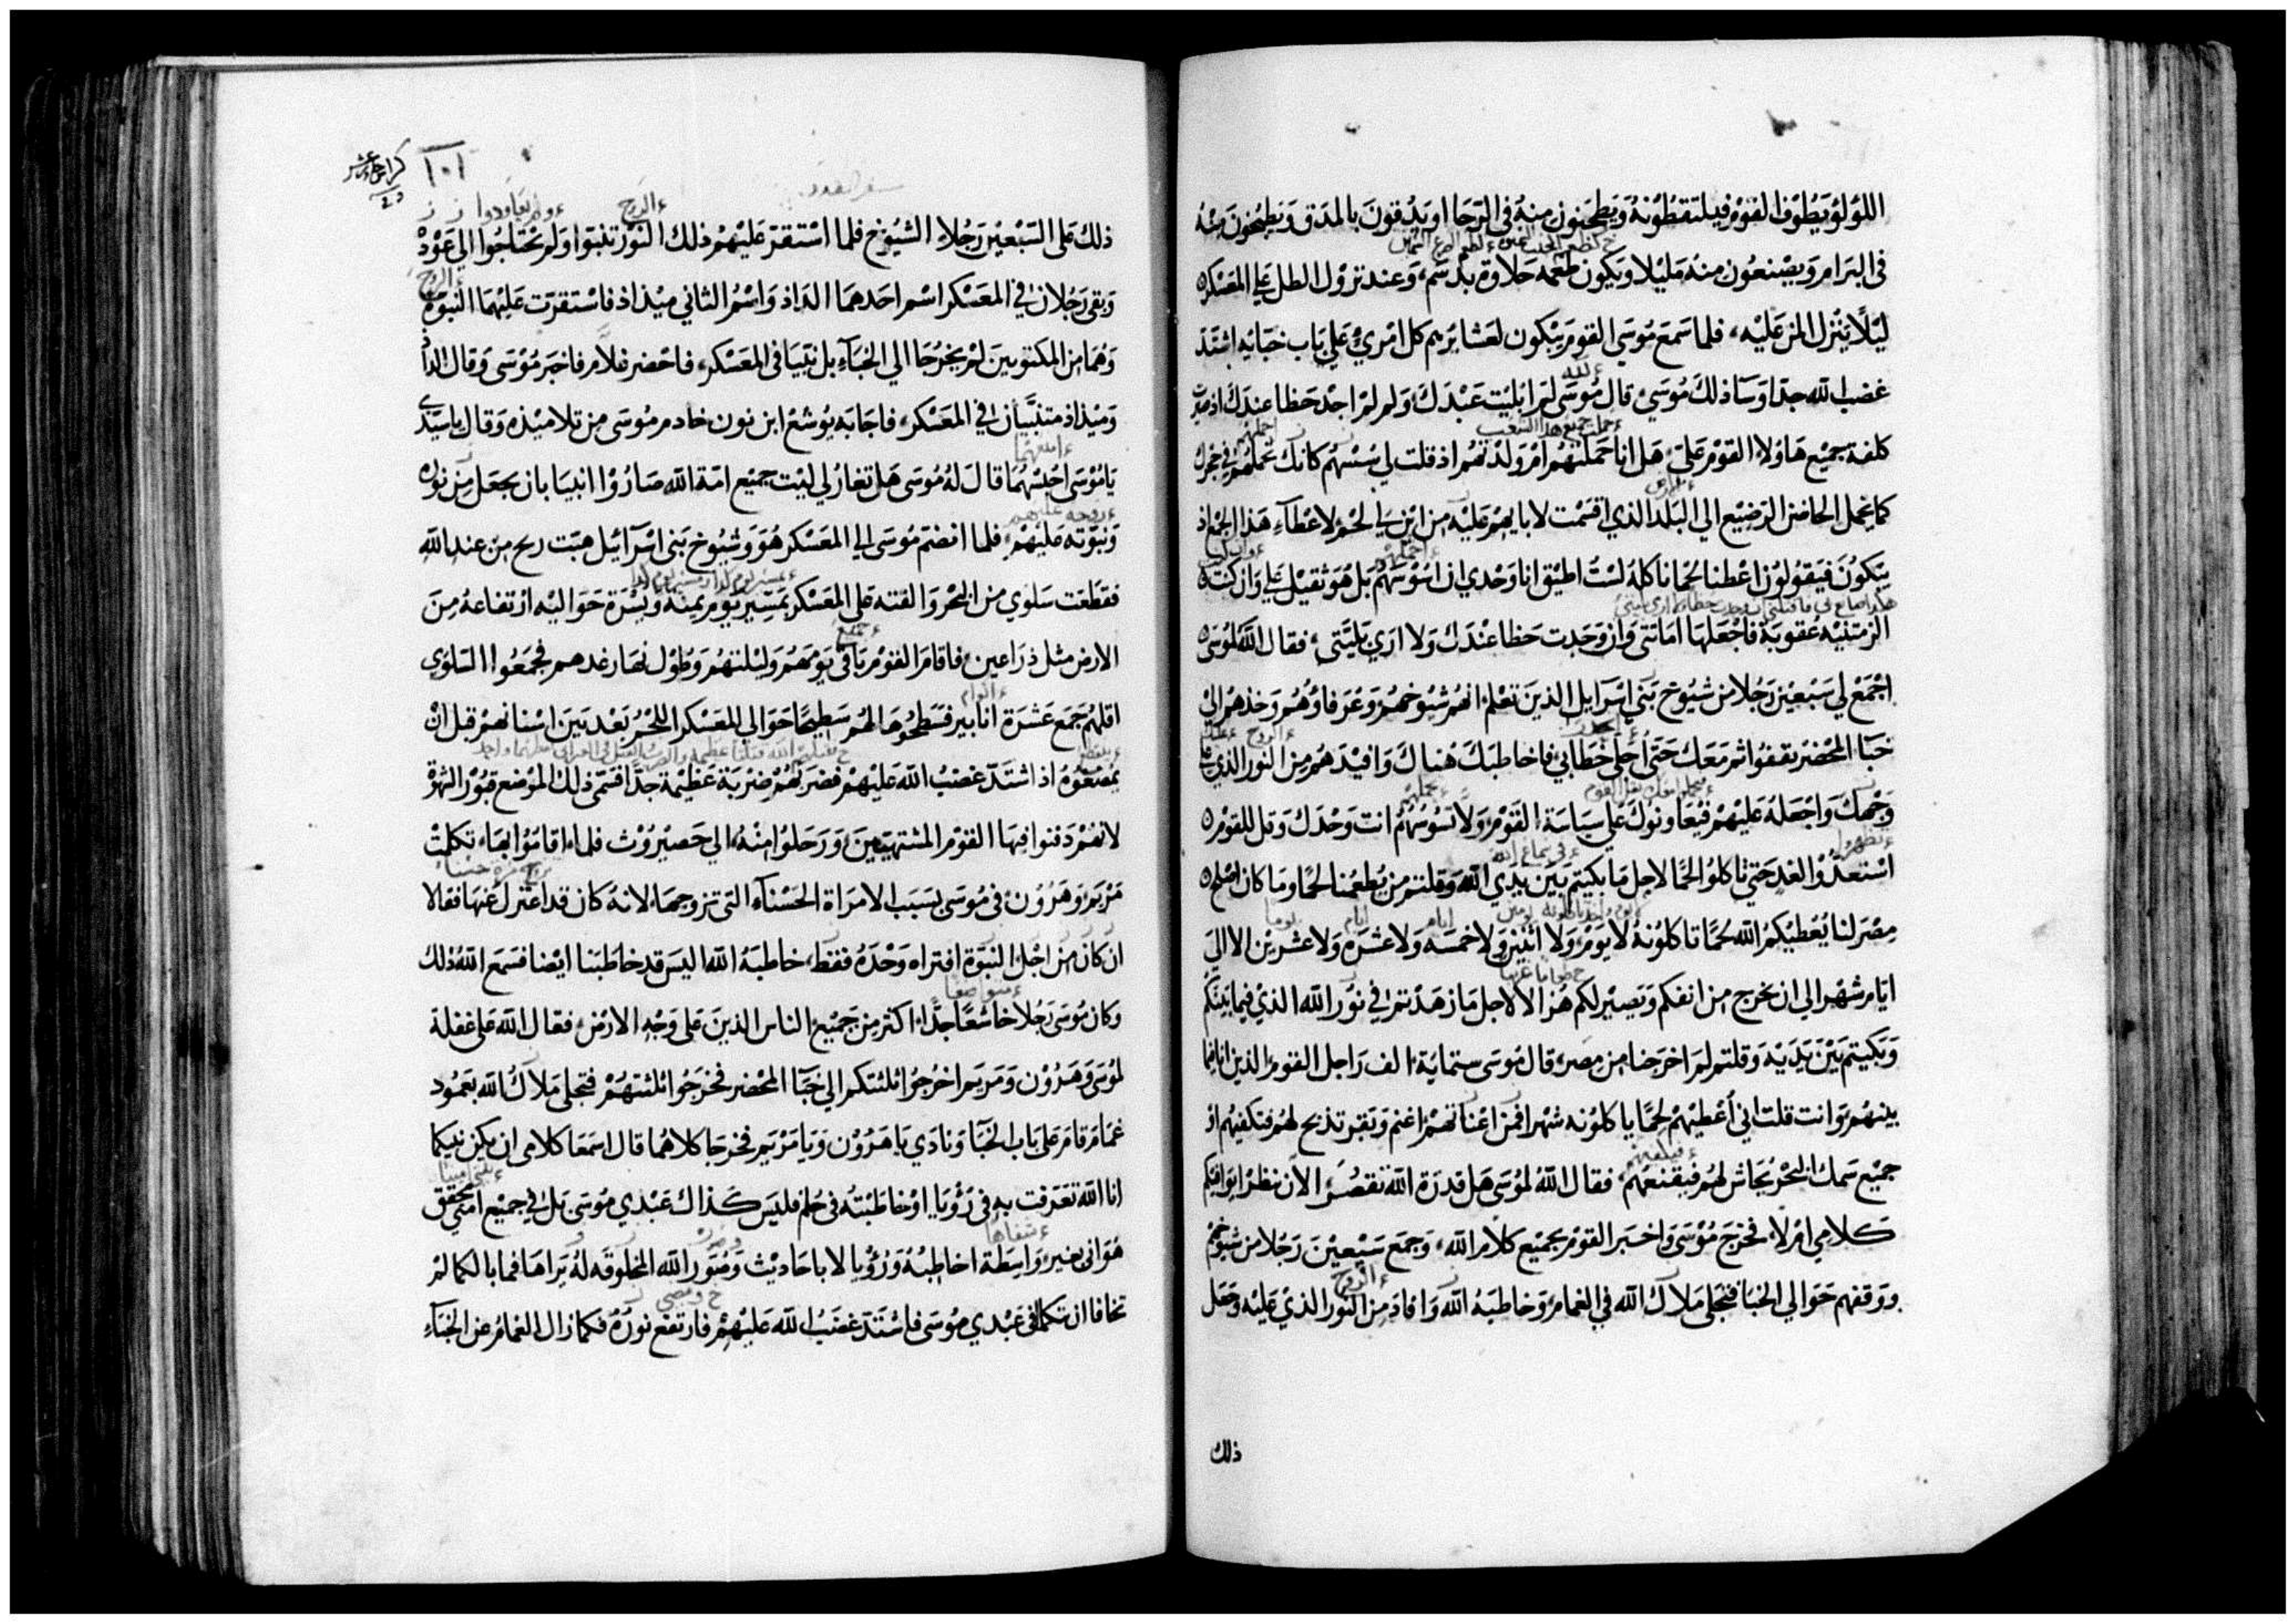 اللؤلؤ يطوف القوم فيلتقطونه ويطحنون منه في الرحا او يدقون بالمدق ويطبخون منه
في البرام ويصنعون منه مليلا ويكون طعمه حلاوة بدسم، وعند نزول الطل علي المعسكر
ليلًا ينزل المن عليه، فلما سمع موسى القوم يبكون لعشايرهم كل امرئ علي باب خبائه اشتد
غضب الله جدا وسا ذلك موسى قال موسى لم ابليت عبدك ولم لم اجد حظا عندك اذ صيرت
كلفة جميع هاولا القوم علي، هل انا حملتهم ام ولدتهم اذ قلت لي سسهم كانك تحملهم في حجرك
كما يحمل الحاضن الرضيع الي البلد الذي اقسمت لابايهم عليه من اين لي لحم لاعطاء هذا الجم اذ
يبكون فيقولون اعطنا لحما ناكله لست اطيق انا وحدي ان اسوسهم بل هو ثقيل علي وان كنت
الزمتنيه عقوبة فاجعلها اماتتي وان وجدت حظا عندك ولا اري بليتي، فقال الله لموسى
اجمع لي سبعين رجلا من شيوخ بني اسرايل الذين تعلم انهم شيوخهم وعرفاؤهم وخذهم الي
خبا المحضر تقفوا ثم معك حتى اجلي خطابي فاخاطبك هناك وافيدهم من النور الذي علي
وجهك واجعله عليهم فيعاونوك علي سياسة القوم ولا تسوسهم انت وحدك وقل للقوم
استعدوا لغد حتي تاكلوا لحما لاجل ما بكيتم بين يدي الله وقلتم من يطعمنا لحما وما كان اصلح
مصر لنا يعطيكم الله لحما تاكلونه لا يوم ولا اثنين ولا خمسه ولا عشره ولا عشرين الا الي
ايام شهر الي ان يخرج من انفكم ويصير لكم هزا الا لاجل ما زهدتم في نور الله الذي فيما بينكم
وبكيتم بين يديه وقلتم لم اخرجنا من مصر، قال موسى ستماية الف راجل القوم الذين انا فيما
بينهم وانت قلت اني اعطيهم لحما ياكلونه شهرا فمن اغناتهم اغنم وبقر تذبح لهم فتكفيهم او
جميع سمك البحر يحاش لهم فيقنعهم، فقال الله لموسى هل قدرة الله تقصر الآن نظر ايوافيكم
كلامي ام لا، فخرج موسى واخبر القوم بجميع كلام الله، وجمع سبعين رجلا من شيوخهم
ووقفهم حوالي الخبا فتجلي ملاك الله في الغمام وخاطبه الله وافاد من النور الذي عليه وجعل
ذلك
١٠١
ذلك على السبعين رجلا الشيوخ فلما استقر عليهم ذلك النور تنبوا ولم يحتاجوا الي عود
وبقي رجلان في المعسكر اسم احدهما الداذ واسم الثاني ميذاذ فاستقرت عليهما النبوة
وهما من المكتوبين لم يخرجا الي الخباء بل تنبيا في المعسكر، فاحضر غلام فاخبر موسى وقال الداذ
وميذاذ متنبيان في المعسكر، فاجابه يوشع ابن نون خادم موسى من تلاميذه وقال يا سيدي
يا موسى احبسهما قال له موسى هل تغار لي ليت جميع امة الله صاروا انبيا بان يجعل من نوره
ونبوته عليهم، فلما انضم موسى الي المعسكر هو وشيوخ بني اسرائيل هبت ريح من عند الله
فقطعت سلوي من البحر والقته على المعسكر بمسير يوم يمنه ويسرة حواليه ارتفاعه من
الارض مثل ذراعين، فاقام القوم باقي يومهم وليلتهم وطول نهار غدهم فجمعوا السلوي
اقلهم جمع عشرة انابير فسطحوها لهم سطيحا حوالي المعسكر اللحم بعد بين اسنانهم قبل ان
يمضغوه اذ اشتد غضب الله عليهم فضربهم ضربة عظيمة جدًا فسمي ذلك الموضع قبور الشهوة
لانهم دفنوا فيها القوم المشتهيين، ورحلوا منه الي حصيروث فلما اقاموا بها، تكلمت
مريم وهرون في موسى بسبب الامراة الحسناء التي تزوجها، لانه كان قد اعتزل عنها فقالا
ان كان من اجل النبوة افتراه وحده فقط، خاطبه الله اليس قد خاطبنا ايضا فسمع الله ذلك
وكان موسى رجلا خاشعا جدًا اكثر من جميع الناس الذين على وجه الارض، فقال الله على غفلة
لموسى وهرون ومريم اخرجوا ثلثتكم الي خبا المحضر فخرجوا ثلثتهم فتجلى ملاك الله بعمود
غمام قام على باب الخبا ونادي يا هرون ويا مريم فخرجا كلاهما قال اسمعا كلامي ان يكن نبيكما
انا الله تعرفت به في رؤيا او خاطبته في حلم فليس كذاك عبدي موسى بل في جميع امتي محقق
هو اني بغير واسطة اخاطبه ورؤيا لا باحاديث وصور الله المخلوقه له يراها فما بالكما لم
تخافا ان تكلما في عبدي موسى فاشتد غضب الله عليهم فارتفع نوره فكما زال الغمام عن الخباء